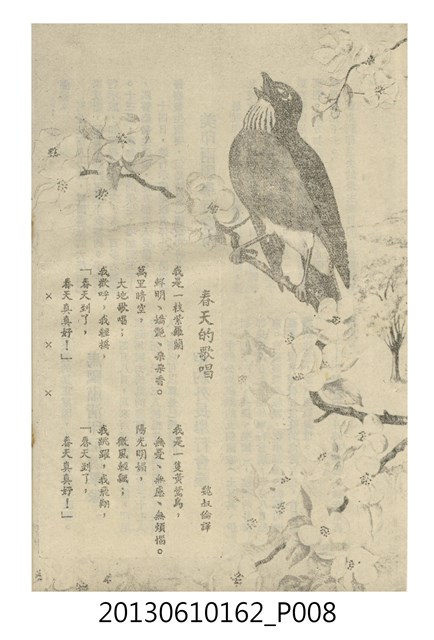 春天的歌唱
魏叔倫譯
我是一枝紫羅蘭，
鮮明、嬌艷、朵朵香。
萬里晴空，
大地歌唱；
我歡呼，我輕搖，
「春天到了，
春天真真好！」
我是一隻黃鶯鳥，
無憂、無慮、無煩惱。
陽光明媚，
微風輕飄；
我跳躍，我飛翔，
「春天到了，
春天真真好！」
× × ×
20130610162_P008